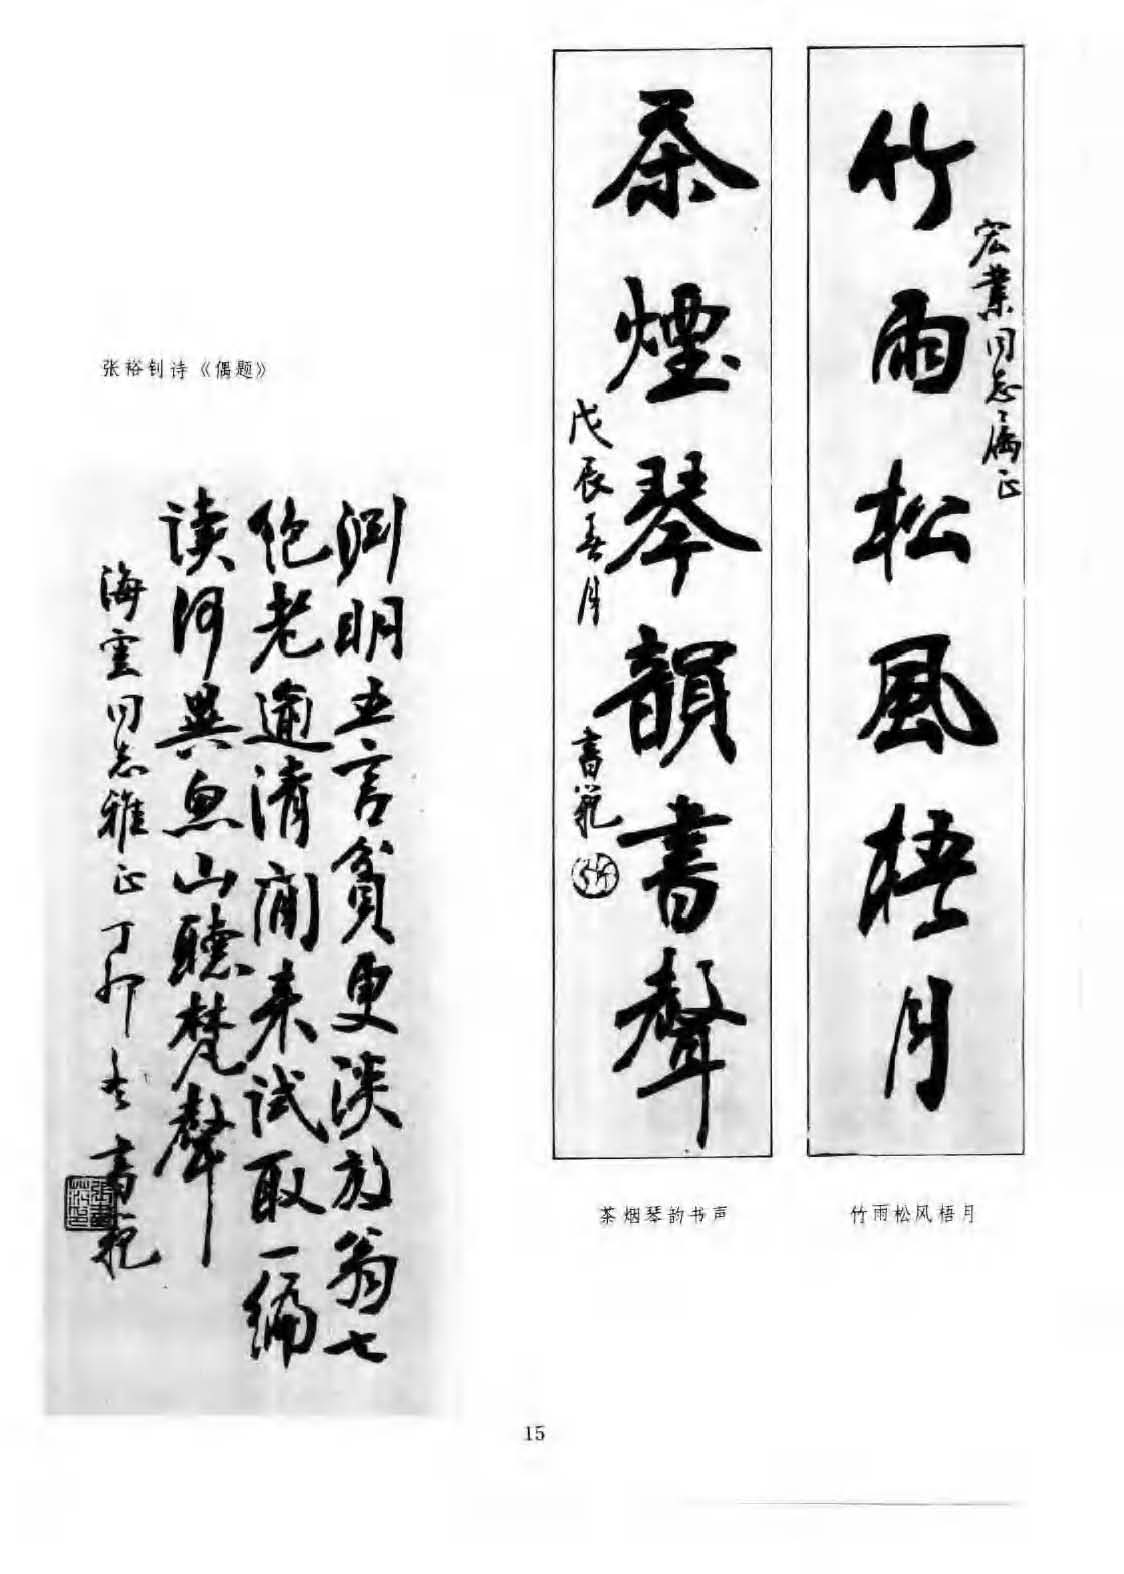 竹雨松風梧月
宏業同志属正
茶煙琴韻書聲
戊辰春月
書範
茶烟琴韵书声
竹雨松风梧月
张裕钊诗《偶题》
渊明五言貧更淡放翁七
绝老逾清閒来试取一编
读何異魚山聽梵聲
海雲同志雅正丁卯冬書範
15